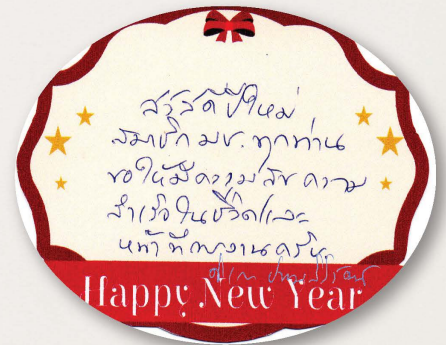 สวัสดีปีใหม่
สมาชิก มข. ทุกท่าน
ขอให้มีความสุข ความ
สำเร็จในชีวิตและ
หน้าที่การงานครับ
Happy New Year